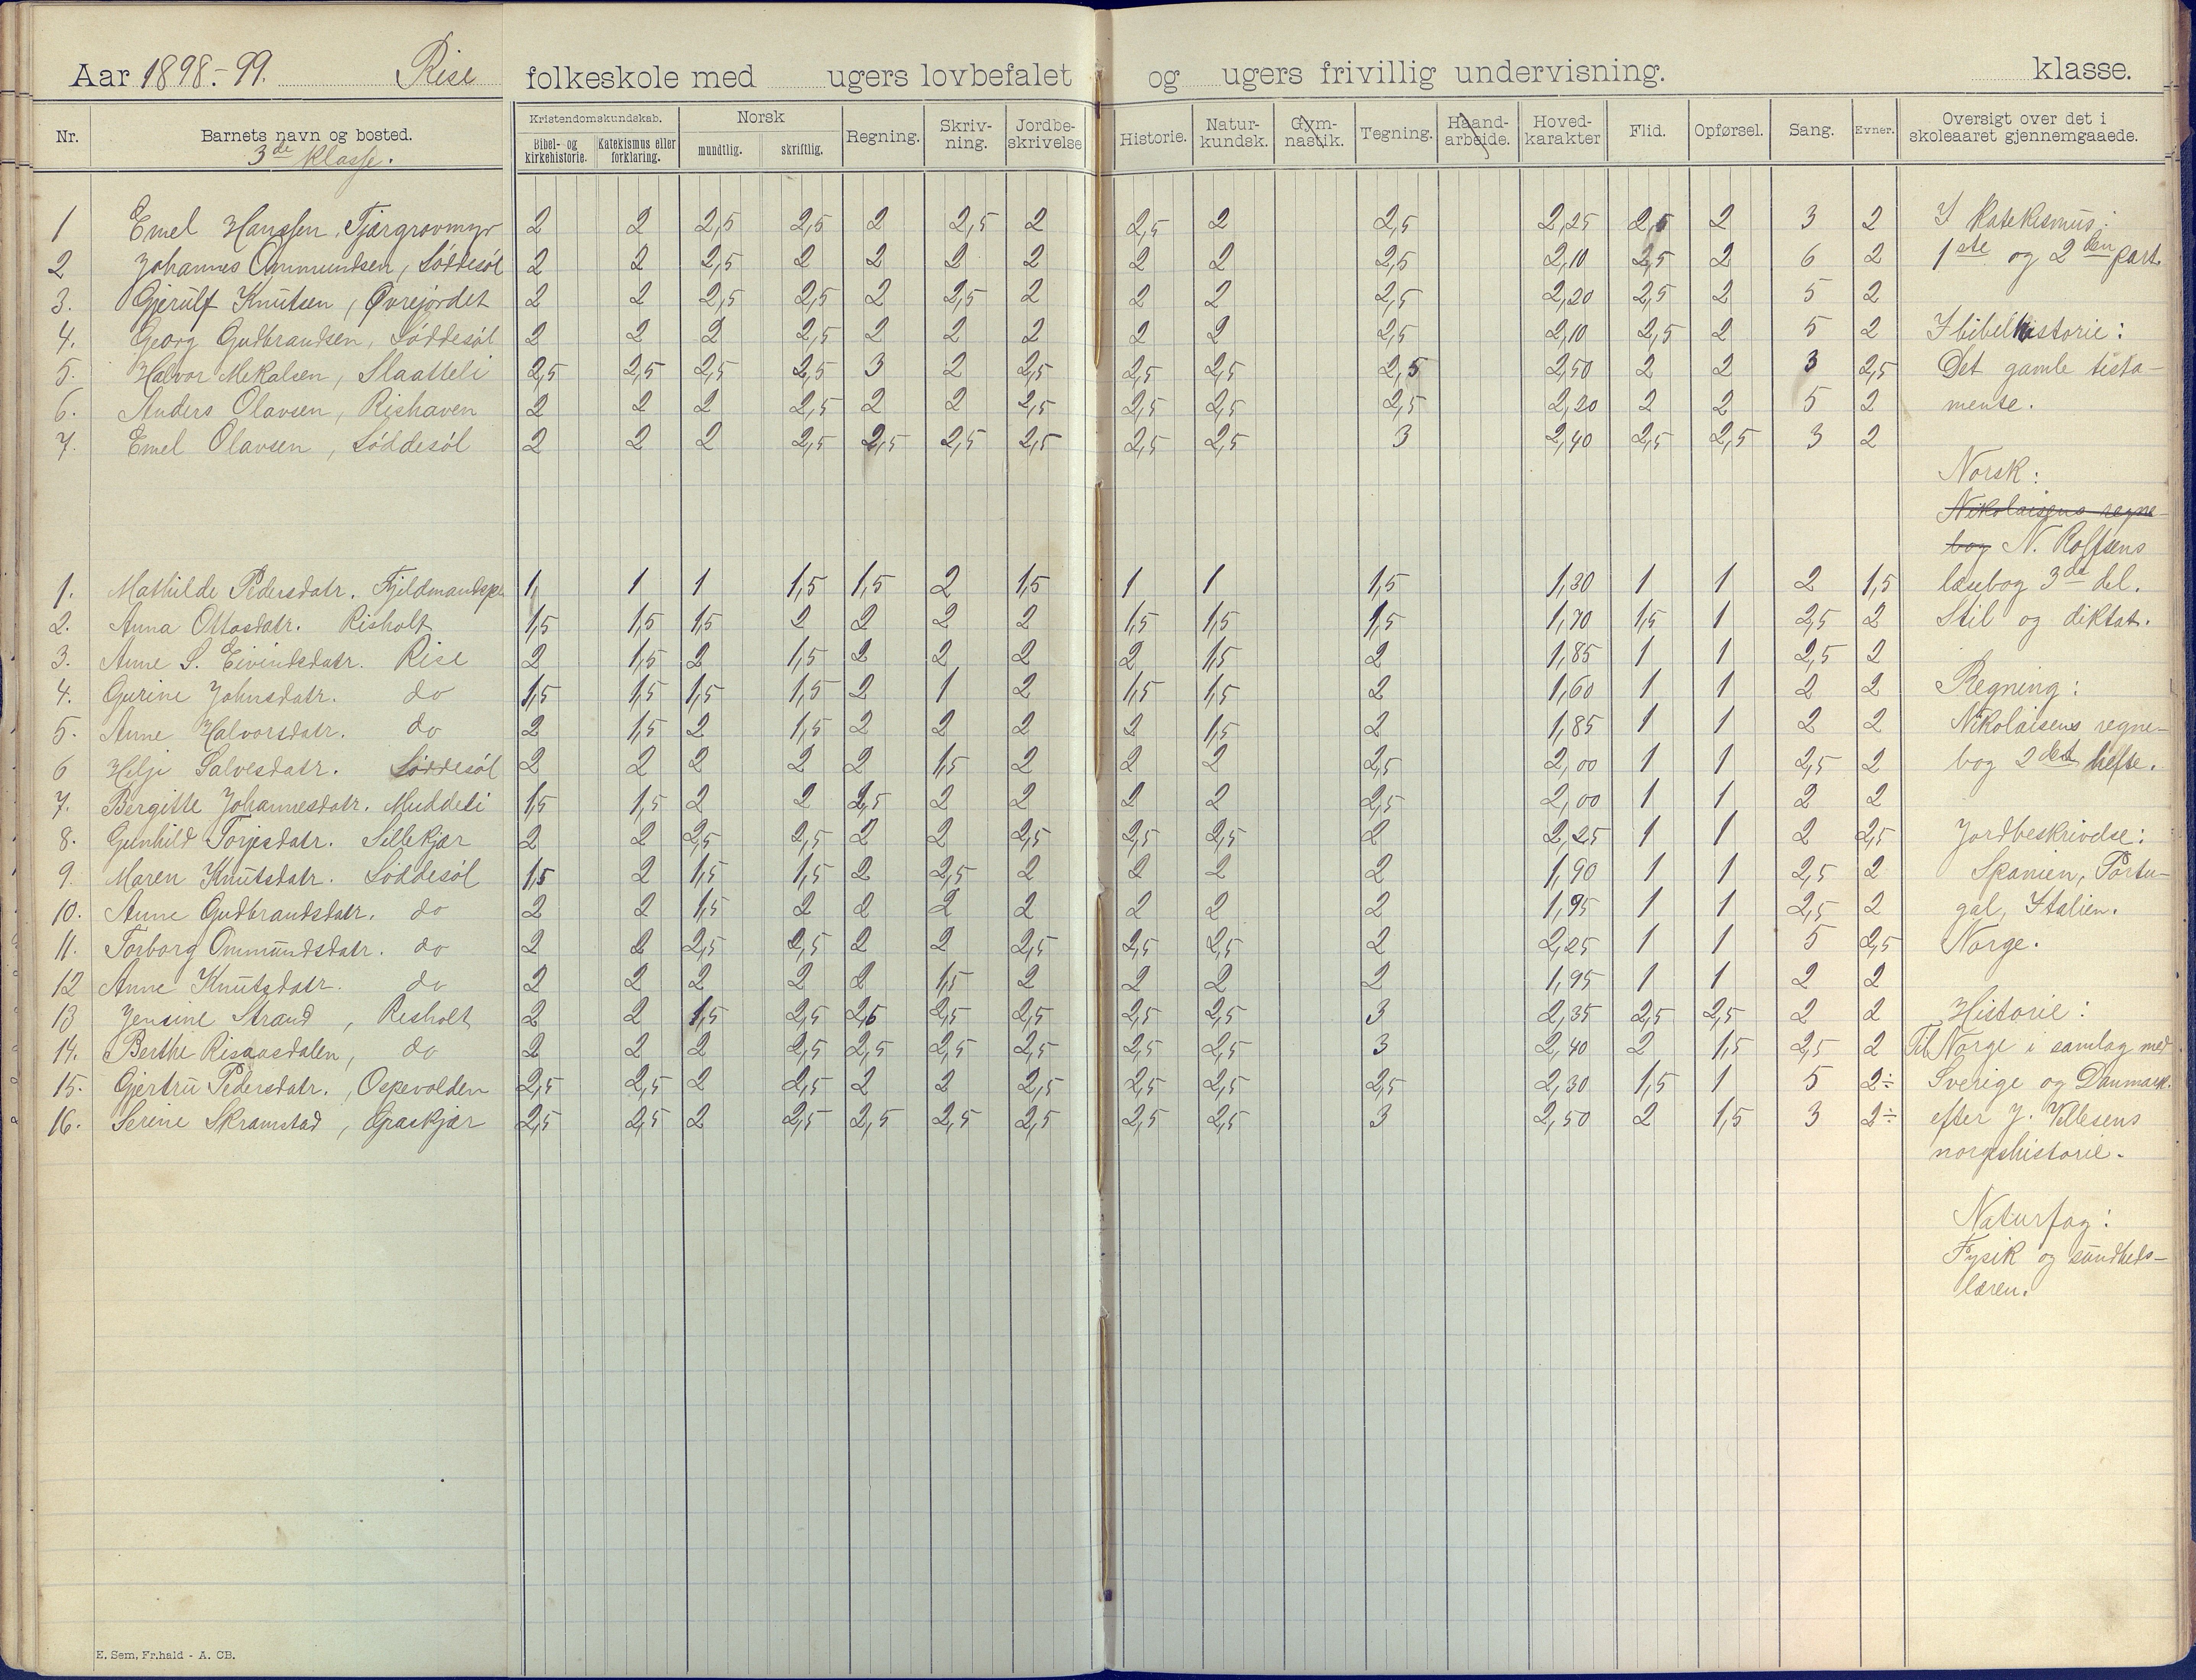 Aar 1898.-99. Rise folkeskole med ugers lovbefalet og ugers frivillig undervisning. klasse.
Nr. Barnets navn og bosted. Kristendomskundskab. Bibel- og kirkehistorie. Katekismus eller forklaring. Norsk mundtlig. skriftlig. Regning. Skriv-ning. Jordbe-skrivelse Historie. Natur-kundsk. Gym-nastik. Tegning. Haand-arbeide. Hoved-karakter Flid. Opførsel. Sang. Evner. Oversigt over det i skoleaaret gjennemgaaede.
3de klasse.
1 Emel Hanssen, Tjærgrovmyr 2 2 2,5 2,5 2 2,5 2 2,5 2 2,5 2,25 2,5 2 3 2 I katekismus:
2 Johannes Ommundsen, Løddesøl 2 2 2,5 2 2 2 2 2 2 2,5 2,10 2,5 2 6 2 1ste og 2den part.
3. Gjerulf Knutsen, Øvrejordet 2 2 2,5 2,5 2 2,5 2 2 2 2,5 2,20 2,5 2 5 2
4. Georg Gudbrandsen, Løddesøl 2 2 2 2,5 2 2 2 2 2 2,5 2,10 2,5 2 5 2 I bibelhistorie:
5. Halvor Mekalsen, Slaatteli 2,5 2,5 2,5 2,5 3 2 2,5 2,5 2,5 2,5 2,50 2 2 3 2,5 Det gamle testa-
6. Anders Olavsen, Rishaven 2 2 2 2,5 2 2 2,5 2,5 2,5 2,5 2,20 2 2 5 2 mente.
7. Emel Olavsen, Løddesøl 2 2 2 2,5 2,5 2,5 2,5 2,5 2,5 3 2,40 2,5 2,5 3 2
Norsk:
Nikolaisens regne-
bog N. Rolfsens
1. Mathilde Pedersdatr. Fjeldmandspl. 1, 1 1 1,5 1,5 2 1,5 1 1 1,5 1,30 1 1 2 1,5 læsebog 3de del.
2. Anna Ottosdatr. Risholt 1,5 1,5 1,5 2 2 2 2 1,5 1,5 1,5 1,70 1,5 1 2,5 2 Stil og diktat.
3. Anne S. Eivindsdatr. Rise 2 1,5 2 1,5 2 2 2 2 1,5 2 1,85 1 1 2,5 2
4. Gurine Johnsdatr. do 1,5 1,5 1,5 1,5 2 1 2 1,5 1,5 2 1,60 1 1 2 2 Regning:
5. Anne Halvorsdatr. do 2 1,5 2 1,5 2 2 2 2 1,5 2 1,85 1 1 2 2 Nikolaisens regne-
6 Helje Salvesdatr. Løddesøl 2 2 2 2 2 1,5 2 2 2 2,5 2,00 1 1 2,5 2 bog 2det hefte.
7. Bergitte Johannesdatr. Muddeli 1,5 1,5 2 2 2,5 2 2 2 2 2,5 2,00 1 1 2 2
8. Gunhild Torjesdatr. Sillekjær 2 2 2,5 2,5 2 2 2,5 2,5 2,5 2 2,25 1 1 2 2,5 Jordbeskrivelse:
9. Maren Knutsdatr. Løddesøl 1,5 2 1,5 1,5 2 2,5 2 2 2 2 1,90 1 1 2,5 2 Spanien, Portu-
10. Anne Gudbrandsdatr. do 2 2 1,5 2 2 2 2 2 2 2 1,95 1 1 2,5 2 gal, Italien.
11. Torborg Ommundsdatr. do 2 2 2,5 2,5 2 2 2,5 2,5 2,5 2 2,25 1 1 5 2,5 Norge.
12 Anne Knutsdatr. do 2 2 2 2 2 1,5 2 2 2 2 1,95 1 1 2 2
13 Jensine Strand, Risholt 2 2 1,5 2,5 2,5 2,5 2,5 2,5 2,5 3 2,35 2,5 2,5 2 2 Historie:
14. Berthe Risaasdalen, do 2 2 2 2,5 2,5 2,5 2,5 2,5 2,5 3 2,40 2 1,5 2,5 2 Til Norge i samlag med
15. Gjertru Pedersdatr., Ospevolden 2,5 2,5 2 2,5 2 2 2,5 2,5 2,5 2,5 2,30 1,5 1 5 2÷ Sverige og Danmark.
16. Serine Skramstad, Graskjær 2,5 2,5 2 2,5 2,5 2,5 2,5 2,5 2,5 3 2,50 2 1,5 3 2÷ efter J. Vellesens
norgeshistorie.
Naturfag:
Fysik og sundheds-
læren.
E. Sem, Fr.hald - A. CB.